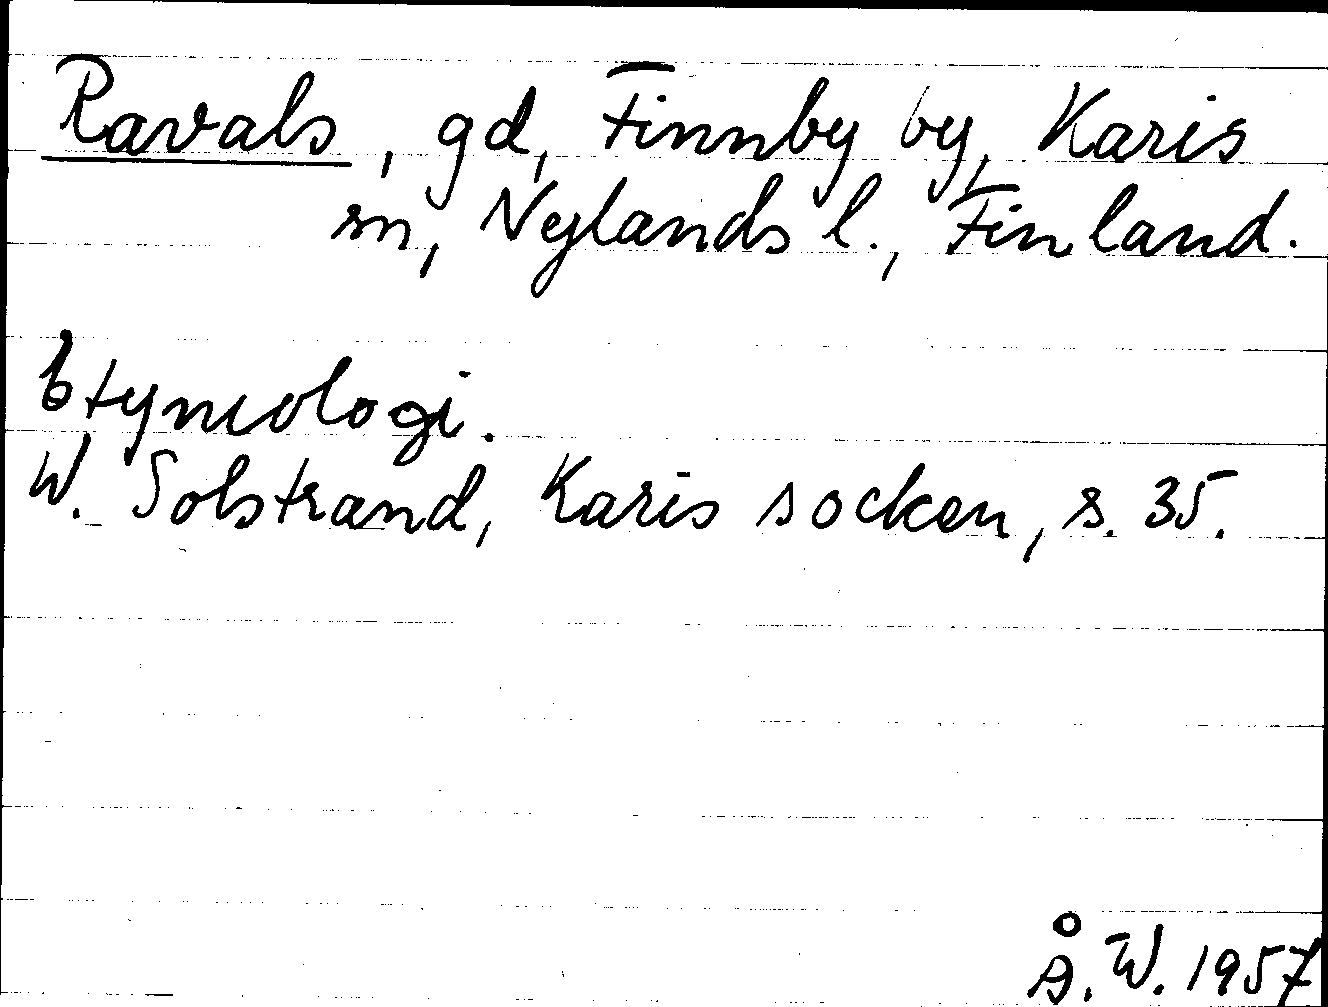 Ravals, gd, Finnby by, Karis
sn, Nylands l., Finland.
Etymologi.
W. Solstrand, Karis socken, s. 35.
Å. W. 1957